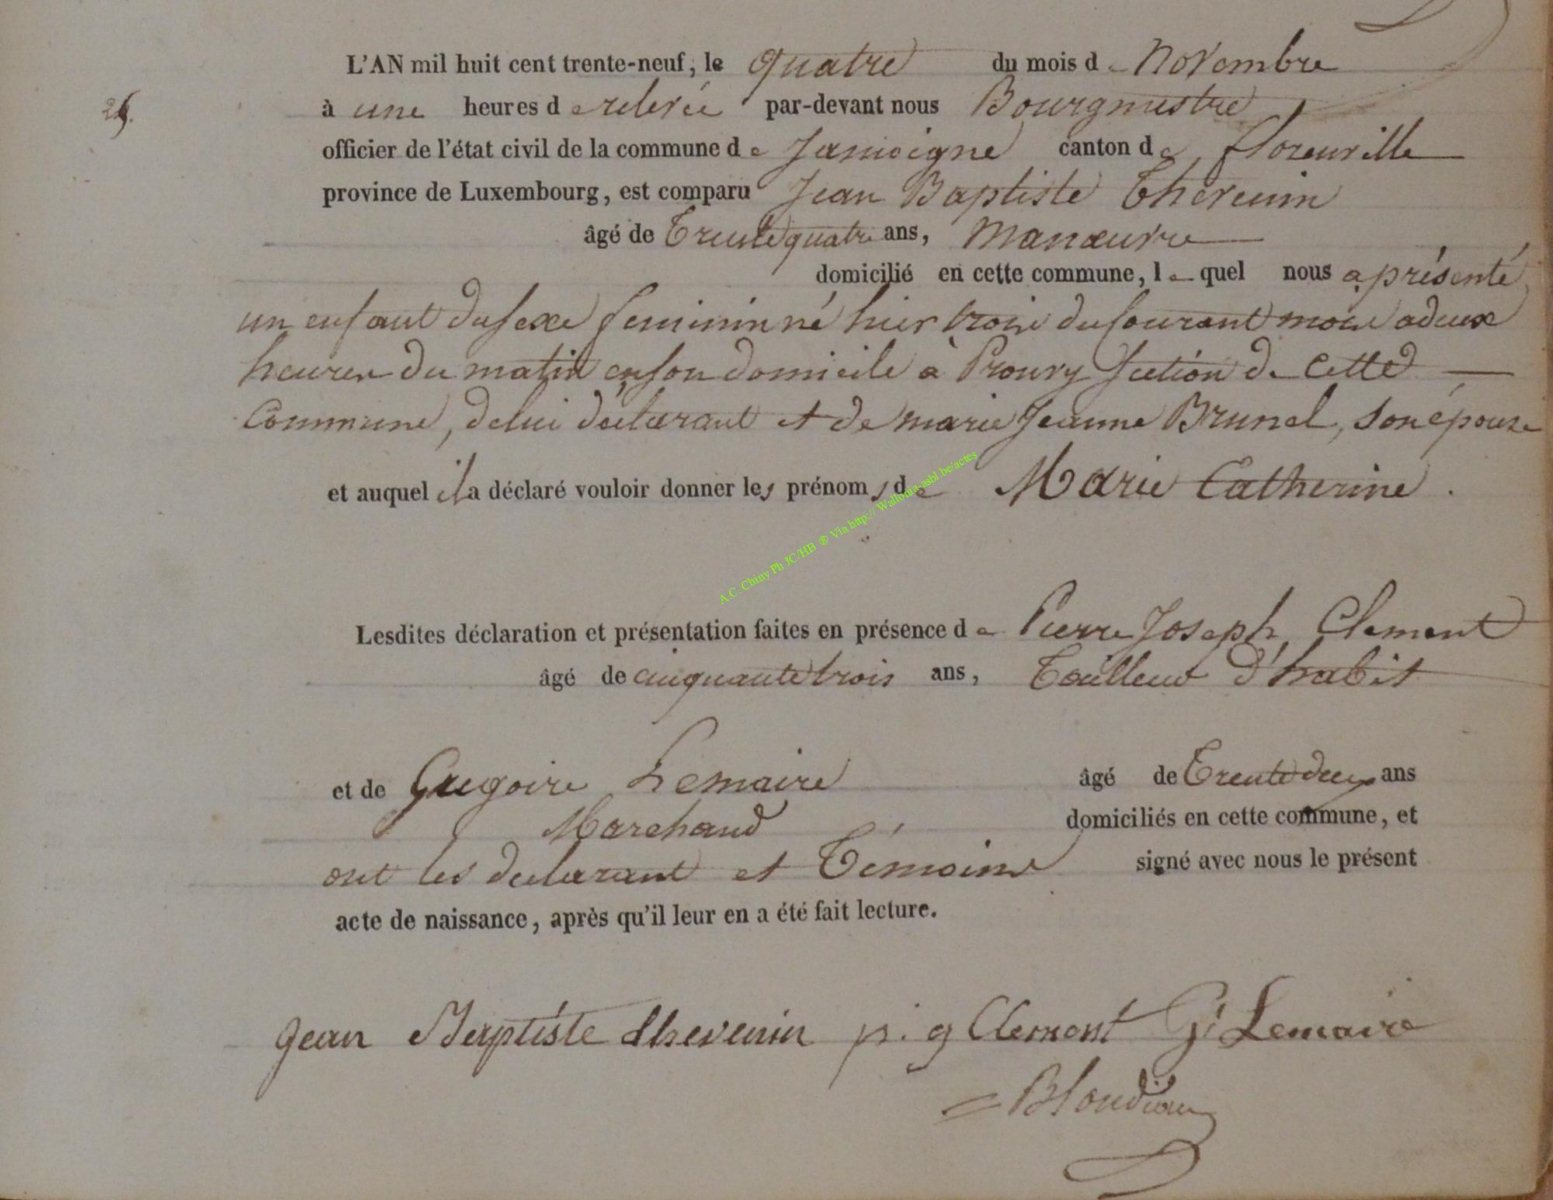 L'AN mil huit cent trente-neuf, le quatre du mois de Novembre
25.
à une heures de relevée par-devant nous Bourgmestre
officier de l'état civil de la commune de Jamoigne canton de florenville
province de Luxembourg, est comparu Jean Baptiste Thevenin
âgé de Trente quatre ans, Manœuvre
domicilié en cette commune, le quel nous a présenté
un enfant du sexe feminin né hier trois du Courant mois a deux
heures du matin en son domicile à Prouvy Section de Cette
Commune, de lui déclarant et de marie Jeanne Brunel, son épouse
et auquel il a déclaré vouloir donner les prénoms de Marie Catherine.
A.C. Chiny Ph JC/HB ® Via http:// Wallonia-asbl.be/actes
Lesdites déclaration et présentation faites en présence de Pierre Joseph Clement
âgé de cinquante trois ans, Tailleur d'habit
et de Gregoire Lemaire âgé de Trente deux ans
Marchand domiciliés en cette commune, et
ont les declarant et Témoins signé avec nous le présent
acte de naissance, après qu'il leur en a été fait lecture.
Jean Baptiste thevenin p. g Clement G Lemaire
Blondiau